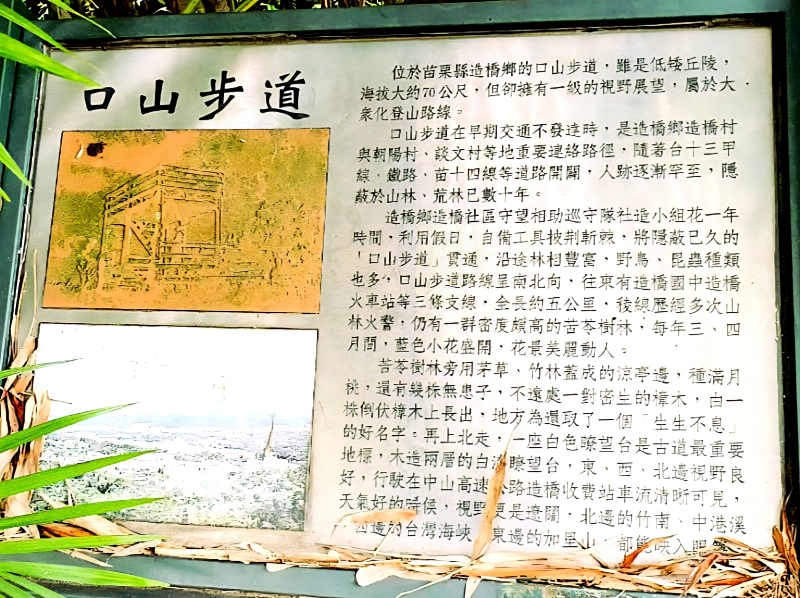 口山步道
位於苗栗縣造橋鄉的口山步道，雖是低矮丘陵，
海拔大約70公尺，但卻擁有一級的視野展望，屬於大
衆化登山路線。
口山步道在早期交通不發達時，是造橋鄉造橋村
與朝陽村、談文村等地重要連絡路徑，隨著台十三甲
線、鐵路、苗十四線等道路開闢，人跡逐漸罕至，隱
蔽於山林、荒林已數十年。
造橋鄉造橋社區守望相助巡守隊社造小組花一年
時間，利用假日，自備工具披荆斬棘，將隱蔽已久的
「口山步道」貫通，沿途林相豐富，野鳥、昆蟲種類
也多，口山步道路線呈南北向，往東有造橋國中造橋
火車站等三條支線，全長約五公里，稜線歷經多次山
林火警，仍有一群密度頗高的苦苓樹林，每年三、四
月間，藍色小花盛開，花景美麗動人。
苦苓樹林旁用茅草、竹林蓋成的涼亭邊，種滿月
桃，還有幾株無患子，不遠處一對密生的樟木，由一
株倒伏樟木上長出，地方為還取了一個「生生不息」
的好名字。再上北走，一座白色瞭望台是古道最重要
地標，木造兩層的白 瞭望台，東、西、北邊視野良
好，行駛在中山高速 路造橋收費站車流清晰可見，
天氣好的時候，視野更是遼闊，北邊的竹南、中港溪
邊的台灣海峽 東邊的加里山 都能映入眼